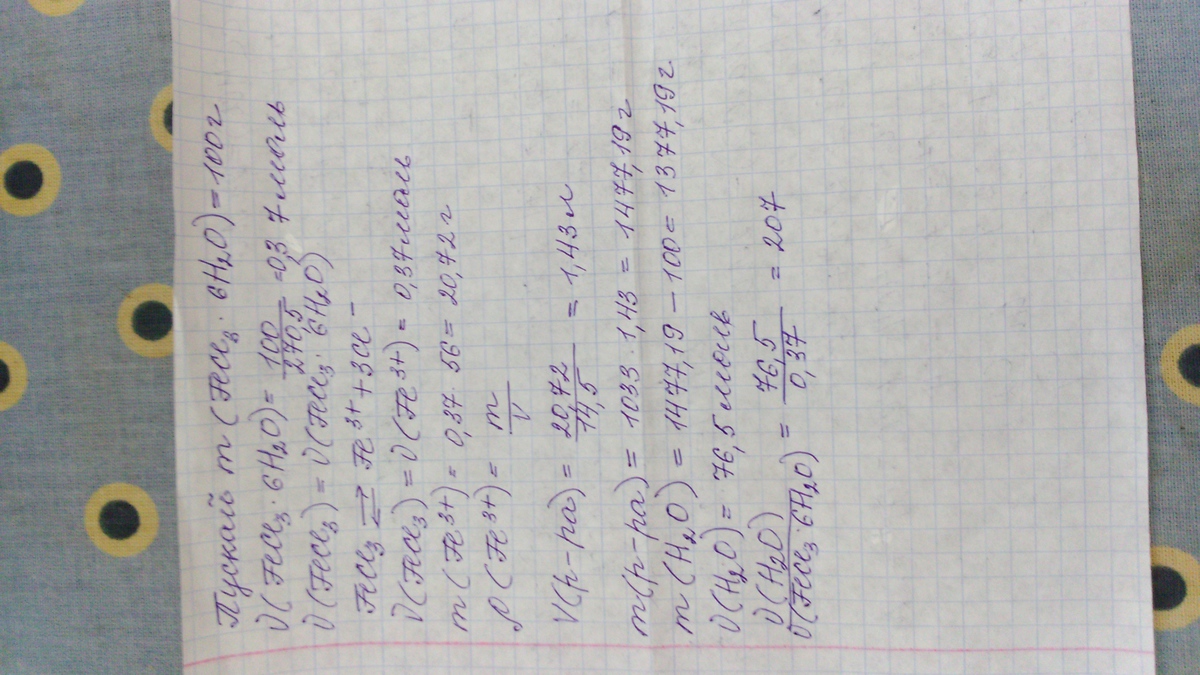 Пускай m(FeCl₃ · 6H₂O) = 100г
ν(FeCl₃ · 6H₂O) = 100/270,5 = 0,37 моль
ν(FeCl₃) = ν(FeCl₃ · 6H₂O)
FeCl₃ ⇄ Fe³⁺ + 3Cl⁻
ν(FeCl₃) = ν(Fe³⁺) = 0,37 моль
m(Fe³⁺) = 0,37 · 56 = 20,72 г
ρ(Fe³⁺) = m/V
V(р-ра) = 20,72/14,5 = 1,43 л
m(р-ра) = 1033 · 1,43 = 1477,19 г
m(H₂O) = 1477,19 − 100 = 1377,19 г
ν(H₂O) = 76,5 моль
ν(H₂O)/ν(FeCl₃ · 6H₂O) = 76,5/0,37 = 207